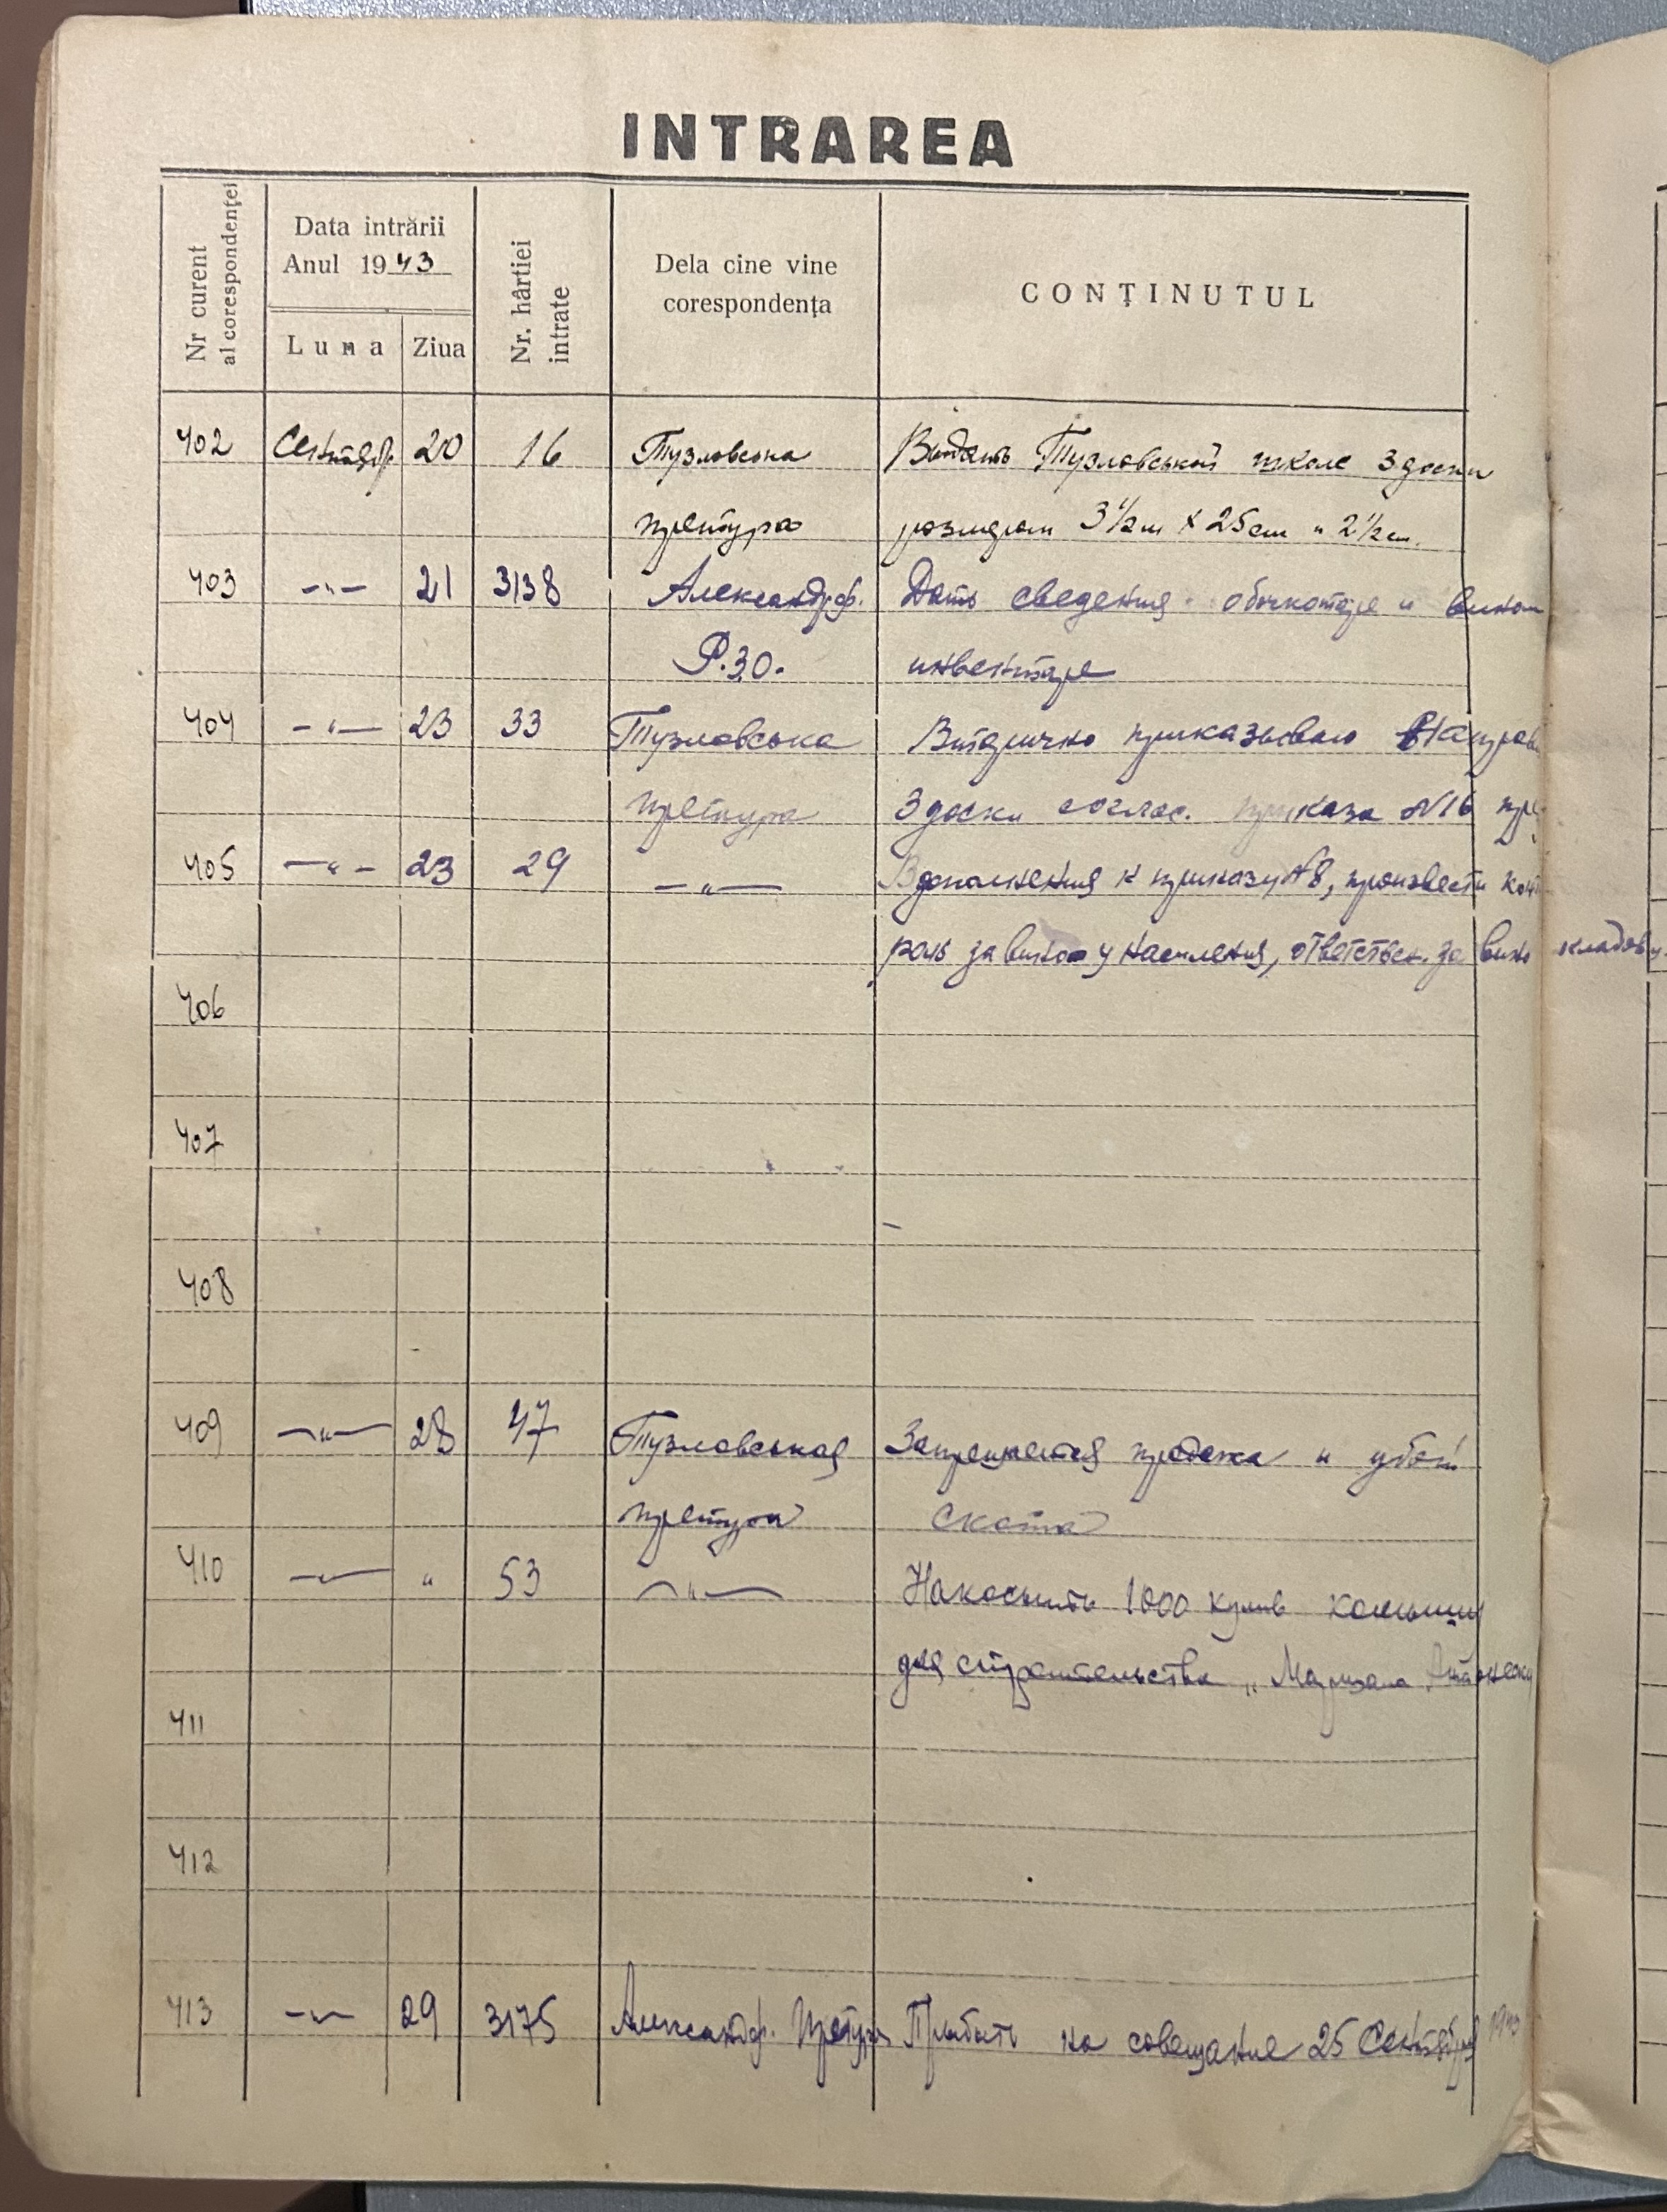 INTRAREA
Nr curent al corespondenţei
Data intrării
Anul 1943
Luna
Ziua
Nr. hârtiei intrate
Dela cine vine corespondenţa
CONŢINUTUL
402 Сентябр 20 16 Тузловсона Выдать Тузловській школе 3 доски
претура розмером 3 1/2 m × 25 cm и 2 1/2 cm.
403 —"— 21 3138 Александрф. Дать сведения о бочкотаре и винном
Р.З.О. инвентаре
404 —"— 23 33 Тузловська Вторично приказываю Направи
претура 3 доски соглас. приказа №16 пре
405 —"— 23 29 —"— В дополнения к приказу №8, произвести конт
роль за вино у населения, ответствен. за вино кладов
406
407
408
409 —"— 28 47 Тузловськая Запрещается продажа и убой
претура скота
410 —"— " 53 —"— Накосить 1000 кулив камыша
для строительства "Маршала Антонеску
411
412
413 —"— 29 3175 Александрф. Претура Прибыть на совещание 25 Сентября 1943